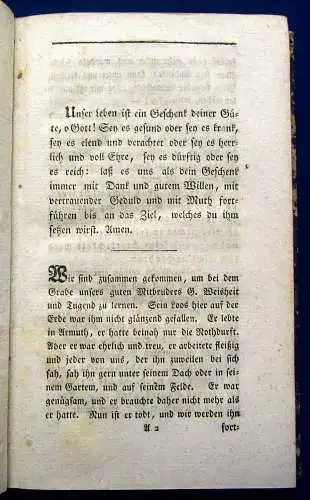 Unser Leben ist ein Geschenk deiner Gü-
te, o Gott! Sey es gesund oder sey es krank,
sey es elend und verachtet oder sey es herr-
lich und voll Ehre, sey es dürftig oder sey
es reich: laß es uns als dein Geschenk
immer mit Dank und gutem Willen, mit
vertrauender Geduld und mit Muth fort-
führen bis an das Ziel, welches du ihm
setzen wirst. Amen.
Wir sind zusammen gekommen, um bei dem
Grabe unsers guten Mitbruders G. Weisheit
und Tugend zu lernen. Sein Loos hier auf der
Erde war ihm nicht glänzend gefallen. Er lebte
in Armuth, er hatte beinah nur die Nothdurft.
Aber er war ehrlich und treu, er arbeitete fleißig
und jeder von uns, der ihn zuweilen bei sich
sah, sah ihn gern unter seinem Dach oder in sei-
nem Garten, und auf seinem Felde. Er war
genügsam, und er brauchte daher nicht mehr als
er hatte. Nun ist er todt, und wir werden ihn
A 2 fort-